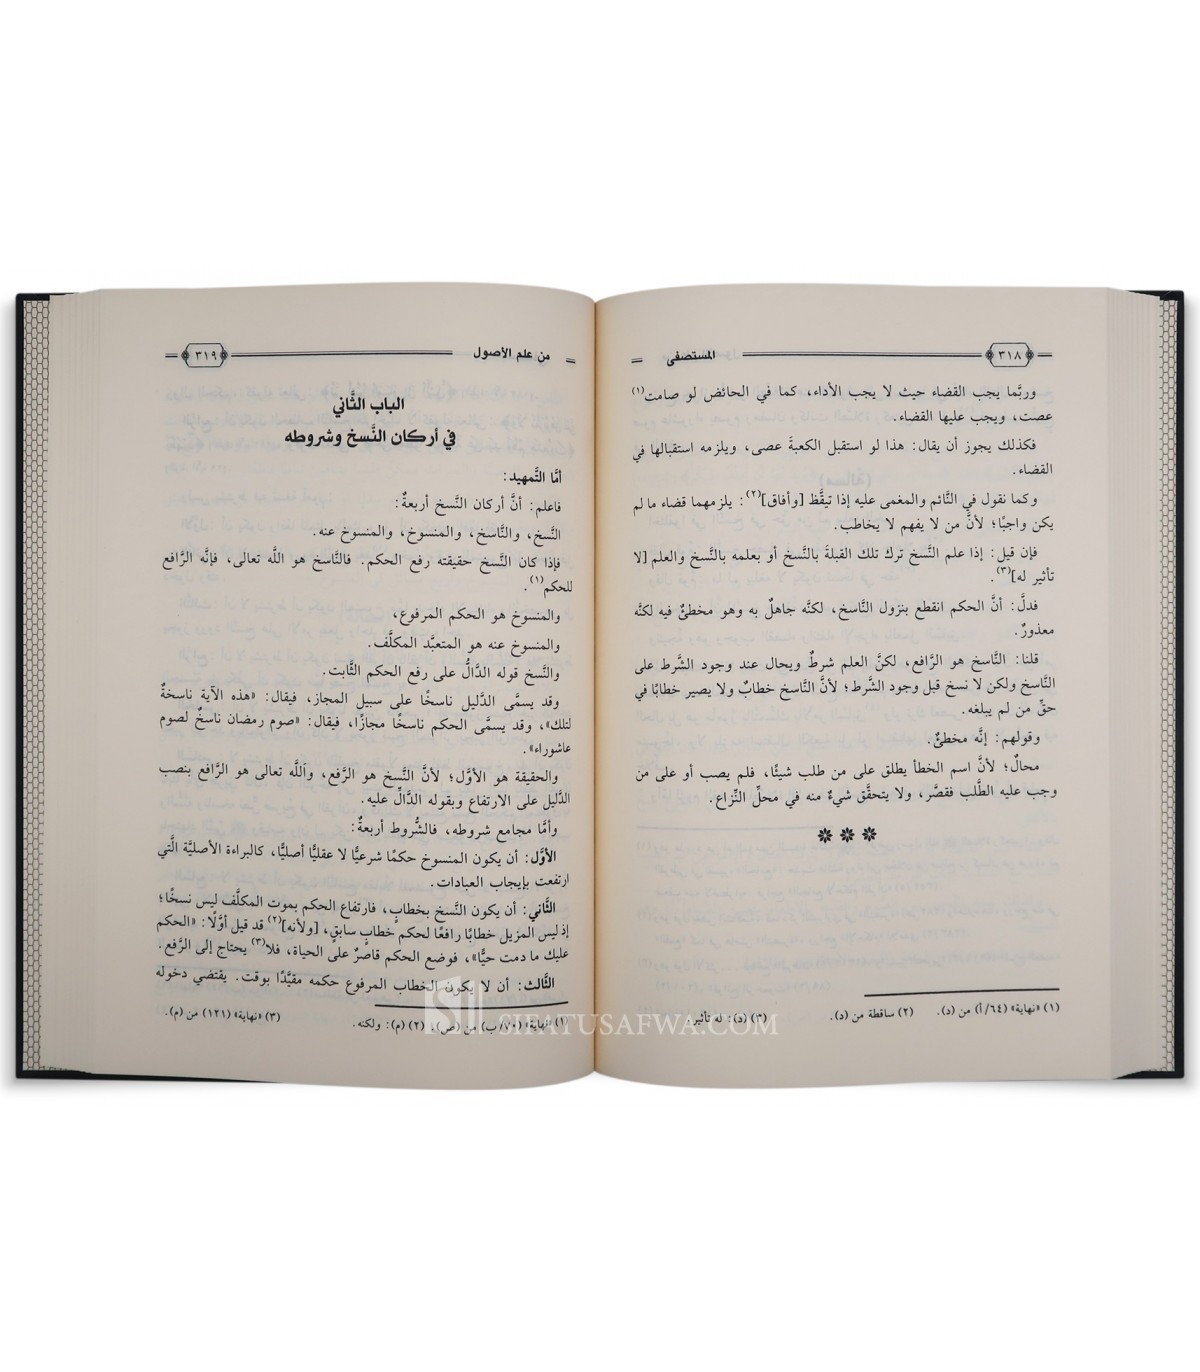 ٣١٨
المستصفى
وربَّما يجب القضاء حيث لا يجب الأداء، كما في الحائض لو صامت(١)
عصت، ويجب عليها القضاء.
فكذلك يجوز أن يقال: هذا لو استقبل الكعبةَ عصى، ويلزمه استقبالها في
القضاء.
وكما نقول في النَّائم والمغمى عليه إذا تيقَّظ [وأفاق](٢): يلزمهما قضاء ما لم
يكن واجبًا؛ لأنَّ من لا يفهم لا يخاطب.
فإن قيل: إذا علم النَّسخ ترك تلك القبلةَ بالنَّسخ أو بعلمه بالنَّسخ والعلم [لا
تأثير له](٣).
فدلَّ: أنَّ الحكم انقطع بنزول النَّاسخ، لكنَّه جاهلٌ به وهو مخطئٌ فيه لكنَّه
معذورٌ.
قلنا: النَّاسخ هو الرَّافع، لكنَّ العلم شرطٌ ويحال عند وجود الشَّرط على
النَّاسخ ولكن لا نسخ قبل وجود الشَّرط؛ لأنَّ النَّاسخ خطابٌ ولا يصير خطابًا في
حقِّ من لم يبلغه.
وقولهم: إنَّه مخطئٌ.
محالٌ؛ لأنَّ اسم الخطأ يطلق على من طلب شيئًا، فلم يصب أو على من
وجب عليه الطَّلب فقصَّر، ولا يتحقَّق شيءٌ منه في محلِّ النِّزاع.
(١) «نهاية» (٦٤/أ) من (د). (٢) ساقطة من (د). (٣) (د): له تأثير.
من علم الأصول
٣١٩
الباب الثَّاني
في أركان النَّسخ وشروطه
أمَّا التَّمهيد:
فاعلم: أنَّ أركان النَّسخ أربعةٌ:
النَّسخ، والنَّاسخ، والمنسوخ، والمنسوخ عنه.
فإذا كان النَّسخ حقيقته رفع الحكم. فالنَّاسخ هو اللَّه تعالى، فإنَّه الرَّافع
للحكم(١).
والمنسوخ هو الحكم المرفوع،
والمنسوخ عنه هو المتعبَّد المكلَّف.
والنَّسخ قوله الدَّالُّ على رفع الحكم الثَّابت.
وقد يسمَّى الدَّليل ناسخًا على سبيل المجاز، فيقال: «هذه الآية ناسخةٌ
لتلك»، وقد يسمَّى الحكم ناسخًا مجازًا، فيقال: «صوم رمضان ناسخٌ لصوم
عاشوراء».
والحقيقة هو الأوَّل؛ لأنَّ النَّسخ هو الرَّفع، واللَّه تعالى هو الرَّافع بنصب
الدَّليل على الارتفاع وبقوله الدَّالِّ عليه.
وأمَّا مجامع شروطه، فالشُّروط أربعةٌ:
الأوَّل: أن يكون المنسوخ حكمًا شرعيًّا لا عقليًّا أصليًّا، كالبراءة الأصليَّة الَّتي
ارتفعت بإيجاب العبادات.
الثَّاني: أن يكون النَّسخ بخطابٍ، فارتفاع الحكم بموت المكلَّف ليس نسخًا؛
إذ ليس المزيل خطابًا رافعًا لحكم خطابٍ سابقٍ، [ولأنه](٢) قد قيل أوَّلًا: «الحكم
عليك ما دمت حيًّا»، فوضع الحكم قاصرٌ على الحياة، فلا(٣) يحتاج إلى الرَّفع.
الثَّالث: أن لا يكون الخطاب المرفوع حكمه مقيَّدًا بوقت. يقتضي دخوله
(١) «نهاية» (٧٠/ب) من (ص). (٢) (م): ولكنه. (٣) «نهاية» (١٢١) من (م).
SIFATUSAFWA.COM